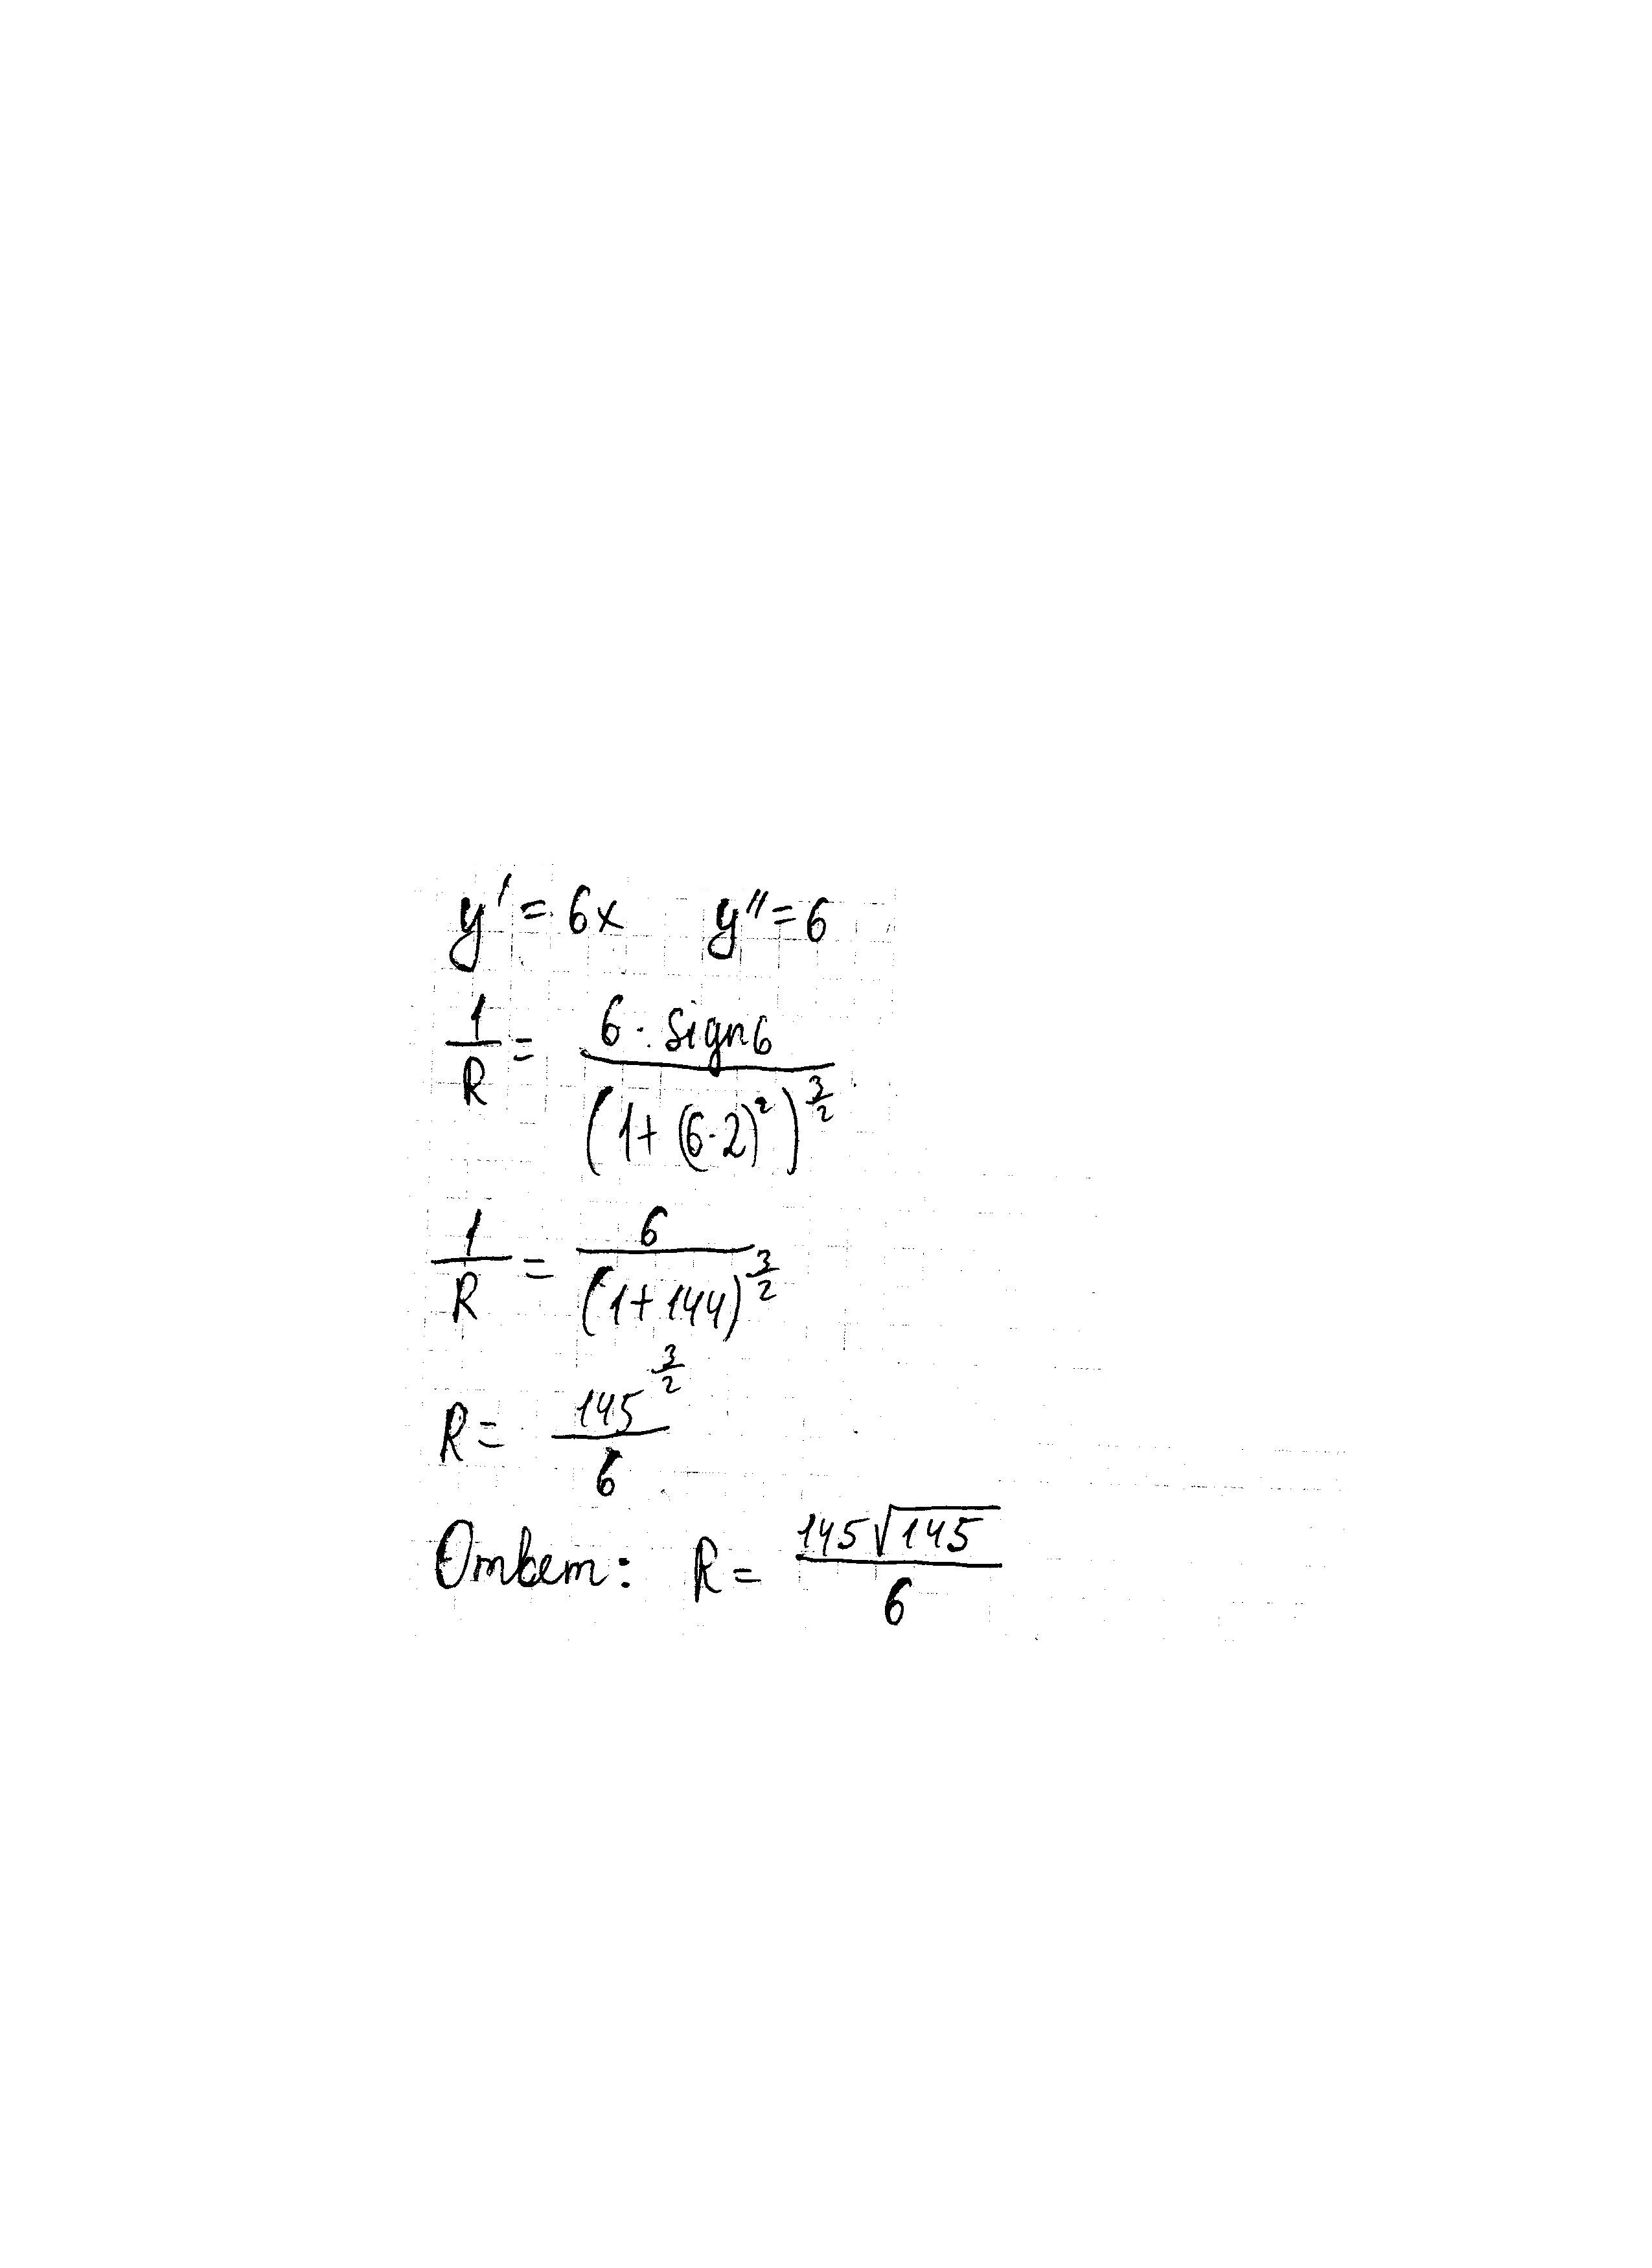 y' = 6x y'' = 6
1/R = 6 · sign6 / (1 + (6·2)²)^(3/2)
1/R = 6 / (1 + 144)^(3/2)
R = 145^(3/2) / 6
Ответ: R = 145√145 / 6